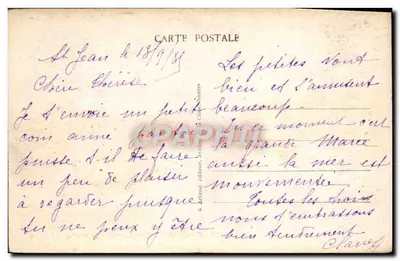 CARTE POSTALE
St Jean le 18/9/
Chère Thérèse
Je t'envoie un petit
coin aimé
puisse t'il te faire
un peu de plaisir
à regarder puisque
tu ne peux y être
Les petites vont
bien et s'amusent
beaucoup.
En ce moment c'est
la grande Marée
aussi la mer est
mouvementée
Toutes les trois
nous t'embrassons
bien tendrement